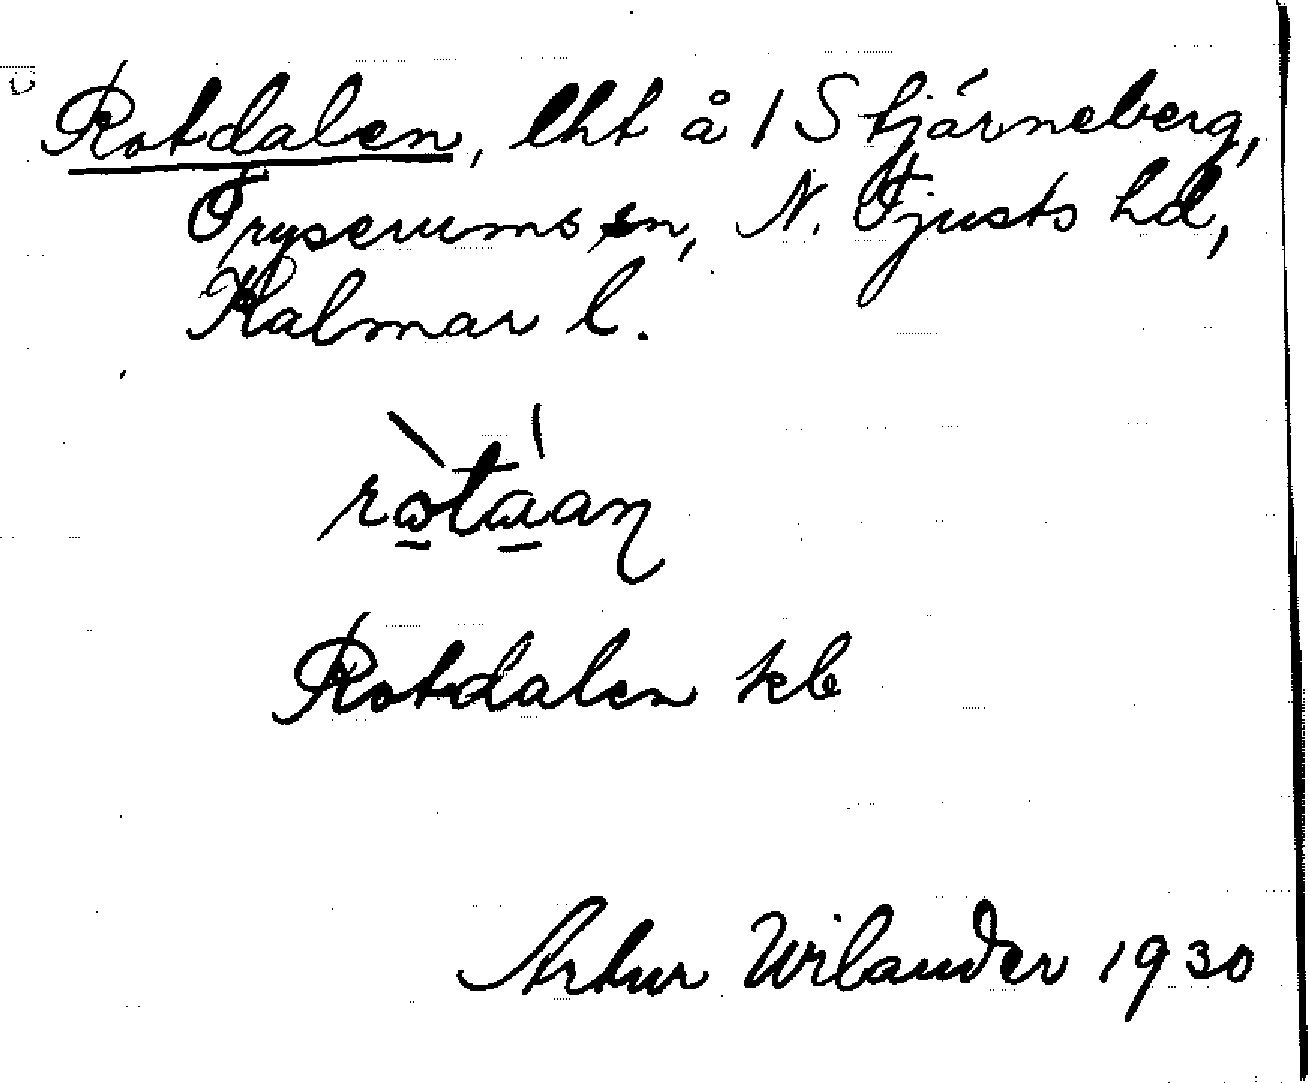 Rotdalen, lht å 1 Stjärneberg,
Tryserums sn, N. Tjusts hd,
Kalmar l.
Rotdalen kb
Artur Wilander 1930